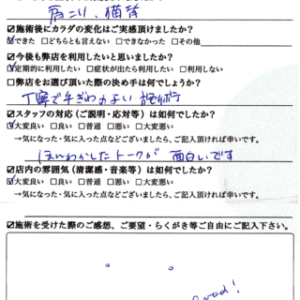 肩こり、猫背
☑施術後にカラダの変化はご実感頂けましたか?
☑できた □どちらとも言えない □できなかった □その他
☑今後も弊店を利用したいと思いましたか?
☑定期的に利用したい □症状が出たら利用したい □利用しない
□弊店をお選び頂いた際の決め手は何でしょうか?
丁寧で手ぎわのよい施術
☑スタッフの対応(ご説明・応対等)は如何でしたか?
☑大変良い □良い □普通 □悪い □大変悪い
→気になった・気に入った点などございましたら、ご記入頂ければ幸いです。
ほんわかしたトークが面白いです
☑店内の雰囲気(清潔感・音楽等)は如何でしたか?
☑大変良い □良い □普通 □悪い □大変悪い
→気になった・気に入った点などございましたら、ご記入頂ければ幸いです。
☑施術を受けた際のご感想、ご要望・らくがき等ご自由にご記入下さい。
Good!